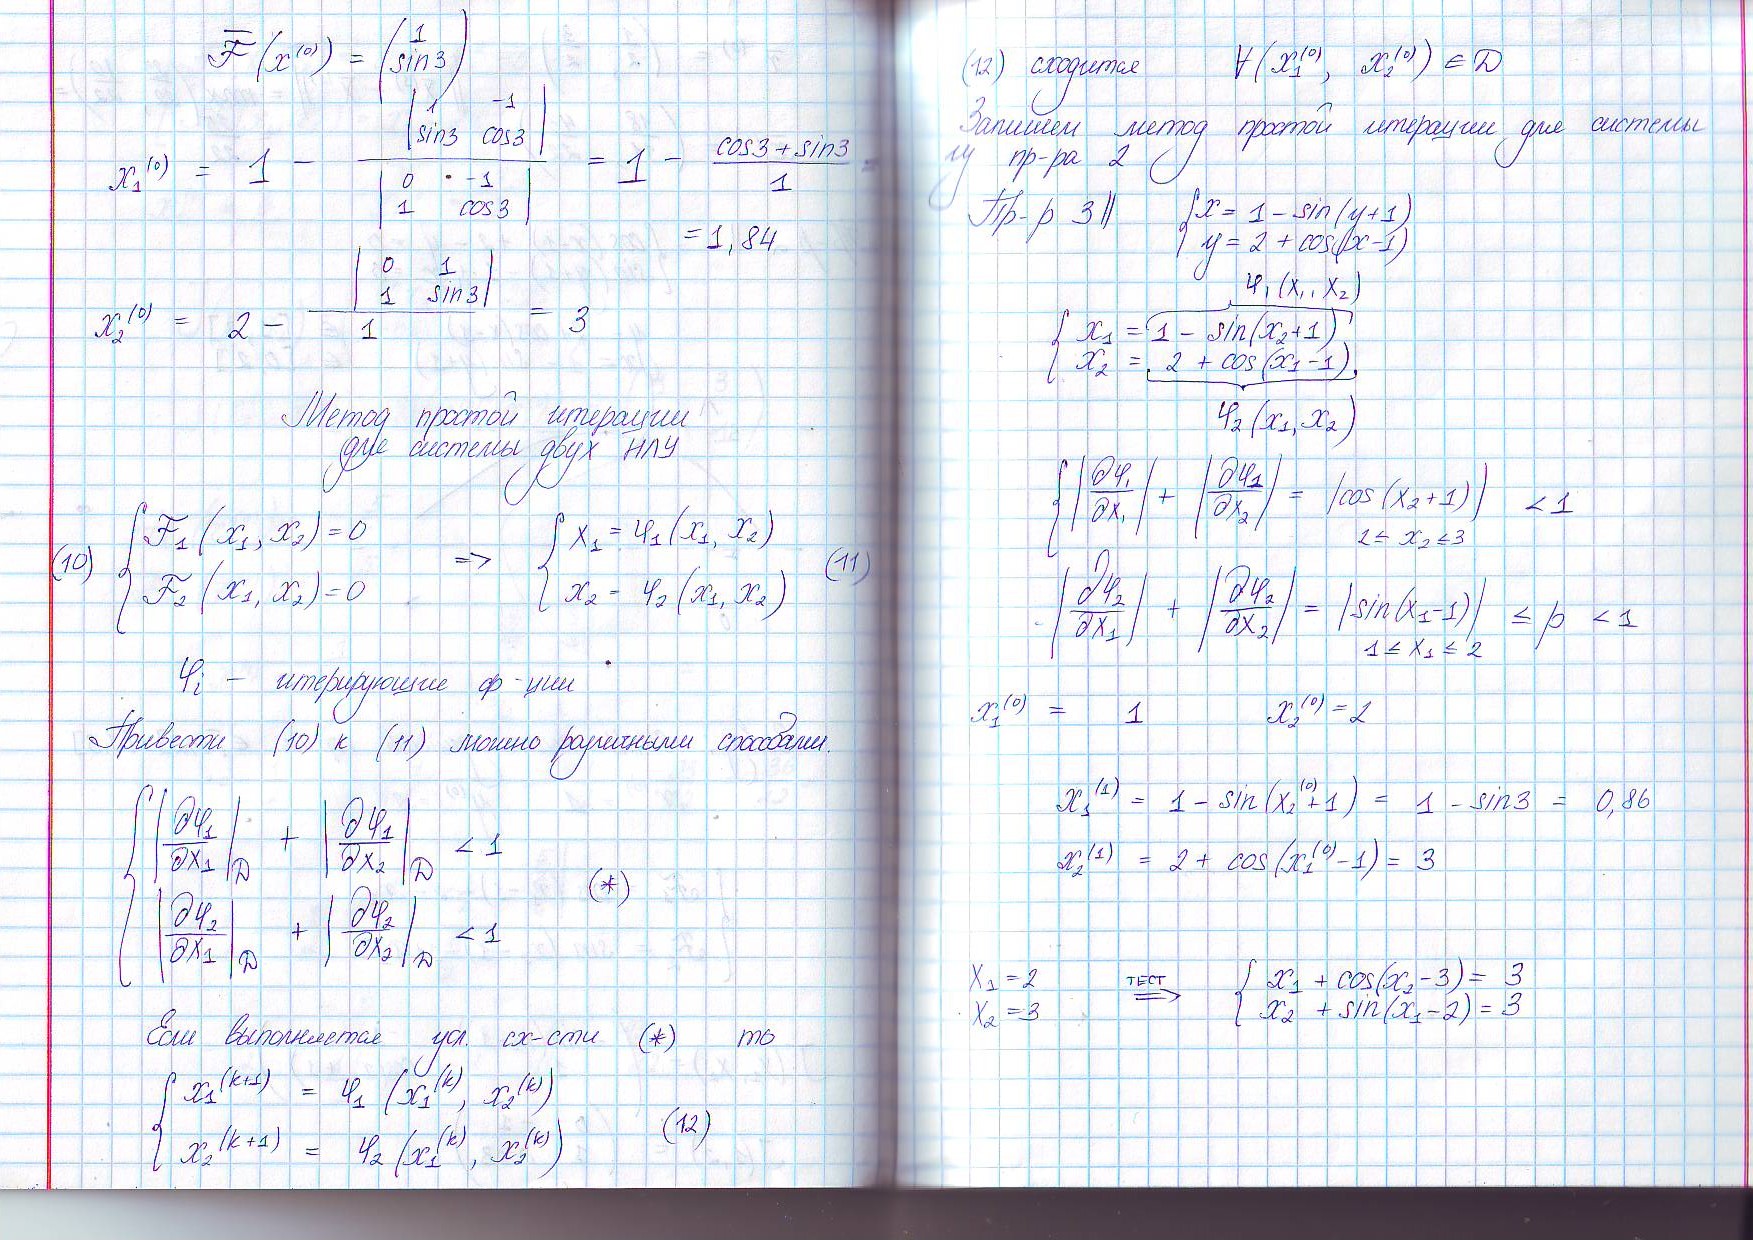 F̅(x⁽⁰⁾) = (1 sin3)
x₁⁽⁰⁾ = 1 − |1 −1; sin3 cos3| / |0 −1; 1 cos3| = 1 − (cos3 + sin3)/1 =
= 1,84
x₂⁽⁰⁾ = 2 − |0 1; 1 sin3| / 1 = 3
Метод простой итерации
для системы двух НЛУ
(10) { F₁(x₁, x₂) = 0 => { x₁ = φ₁(x₁, x₂) (11)
F₂(x₁, x₂) = 0 x₂ = φ₂(x₁, x₂)
φᵢ – итерирующие ф-ции
Привести (10) к (11) можно различными способами.
{ |∂φ₁/∂x₁|_D + |∂φ₁/∂x₂|_D < 1
|∂φ₂/∂x₁|_D + |∂φ₂/∂x₂|_D < 1 (*)
Если выполняется усл. сх-сти (*) то
{ x₁⁽ᵏ⁺¹⁾ = φ₁(x₁⁽ᵏ⁾, x₂⁽ᵏ⁾)
x₂⁽ᵏ⁺¹⁾ = φ₂(x₁⁽ᵏ⁾, x₂⁽ᵏ⁾) (12)
(12) сходится ∀(x₁⁽⁰⁾, x₂⁽⁰⁾) ∈ D
Запишем метод простой итерации для системы
из пр-ра 2
Пр-р 3|| { x = 1 − sin(y+1)
y = 2 + cos(x−1)
φ₁(x₁, x₂)
{ x₁ = 1 − sin(x₂+1)
x₂ = 2 + cos(x₁−1)
φ₂(x₁, x₂)
{ |∂φ₁/∂x₁| + |∂φ₁/∂x₂| = |cos(x₂+1)| < 1
2 ≤ x₂ ≤ 3
|∂φ₂/∂x₁| + |∂φ₂/∂x₂| = |sin(x₁−1)| ≤ p < 1
1 ≤ x₁ ≤ 2
x₁⁽⁰⁾ = 1 x₂⁽⁰⁾ = 2
x₁⁽¹⁾ = 1 − sin(x₂⁽⁰⁾+1) = 1 − sin3 = 0,86
x₂⁽¹⁾ = 2 + cos(x₁⁽⁰⁾−1) = 3
x₁ = 2 тест => { x₁ + cos(x₂−3) = 3
x₂ = 3 x₂ + sin(x₁−2) = 3